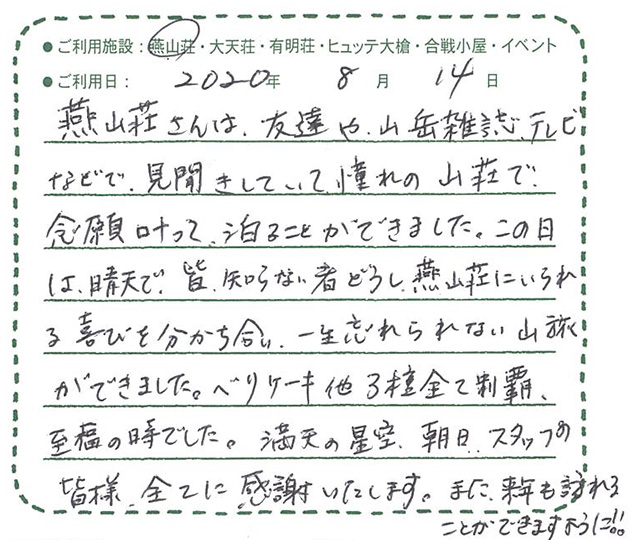 ● ご利用施設：燕山荘・大天荘・有明荘・ヒュッテ大槍・合戦小屋・イベント
● ご利用日： 2020年 8月 14日
燕山荘さんは、友達や、山岳雑誌、テレビ
などで、見聞きしていて、憧れの山荘で、
念願叶って、泊ることができました。この日
は、晴天で、皆、知らない者どうし、燕山荘にいられ
る喜びを分かち合い、一生忘れられない山旅
ができました。ベリーケーキ他3種全て制覇、
至福の時でした。満天の星空、朝日、スタッフの
皆様、全てに感謝いたします。また、来年も訪れる
ことができますように!!。